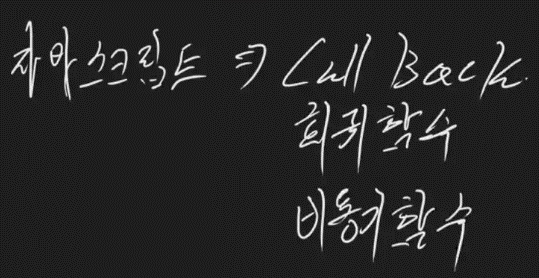 자바스크립트 ⇒ Call Back.
회귀함수
비동기함수